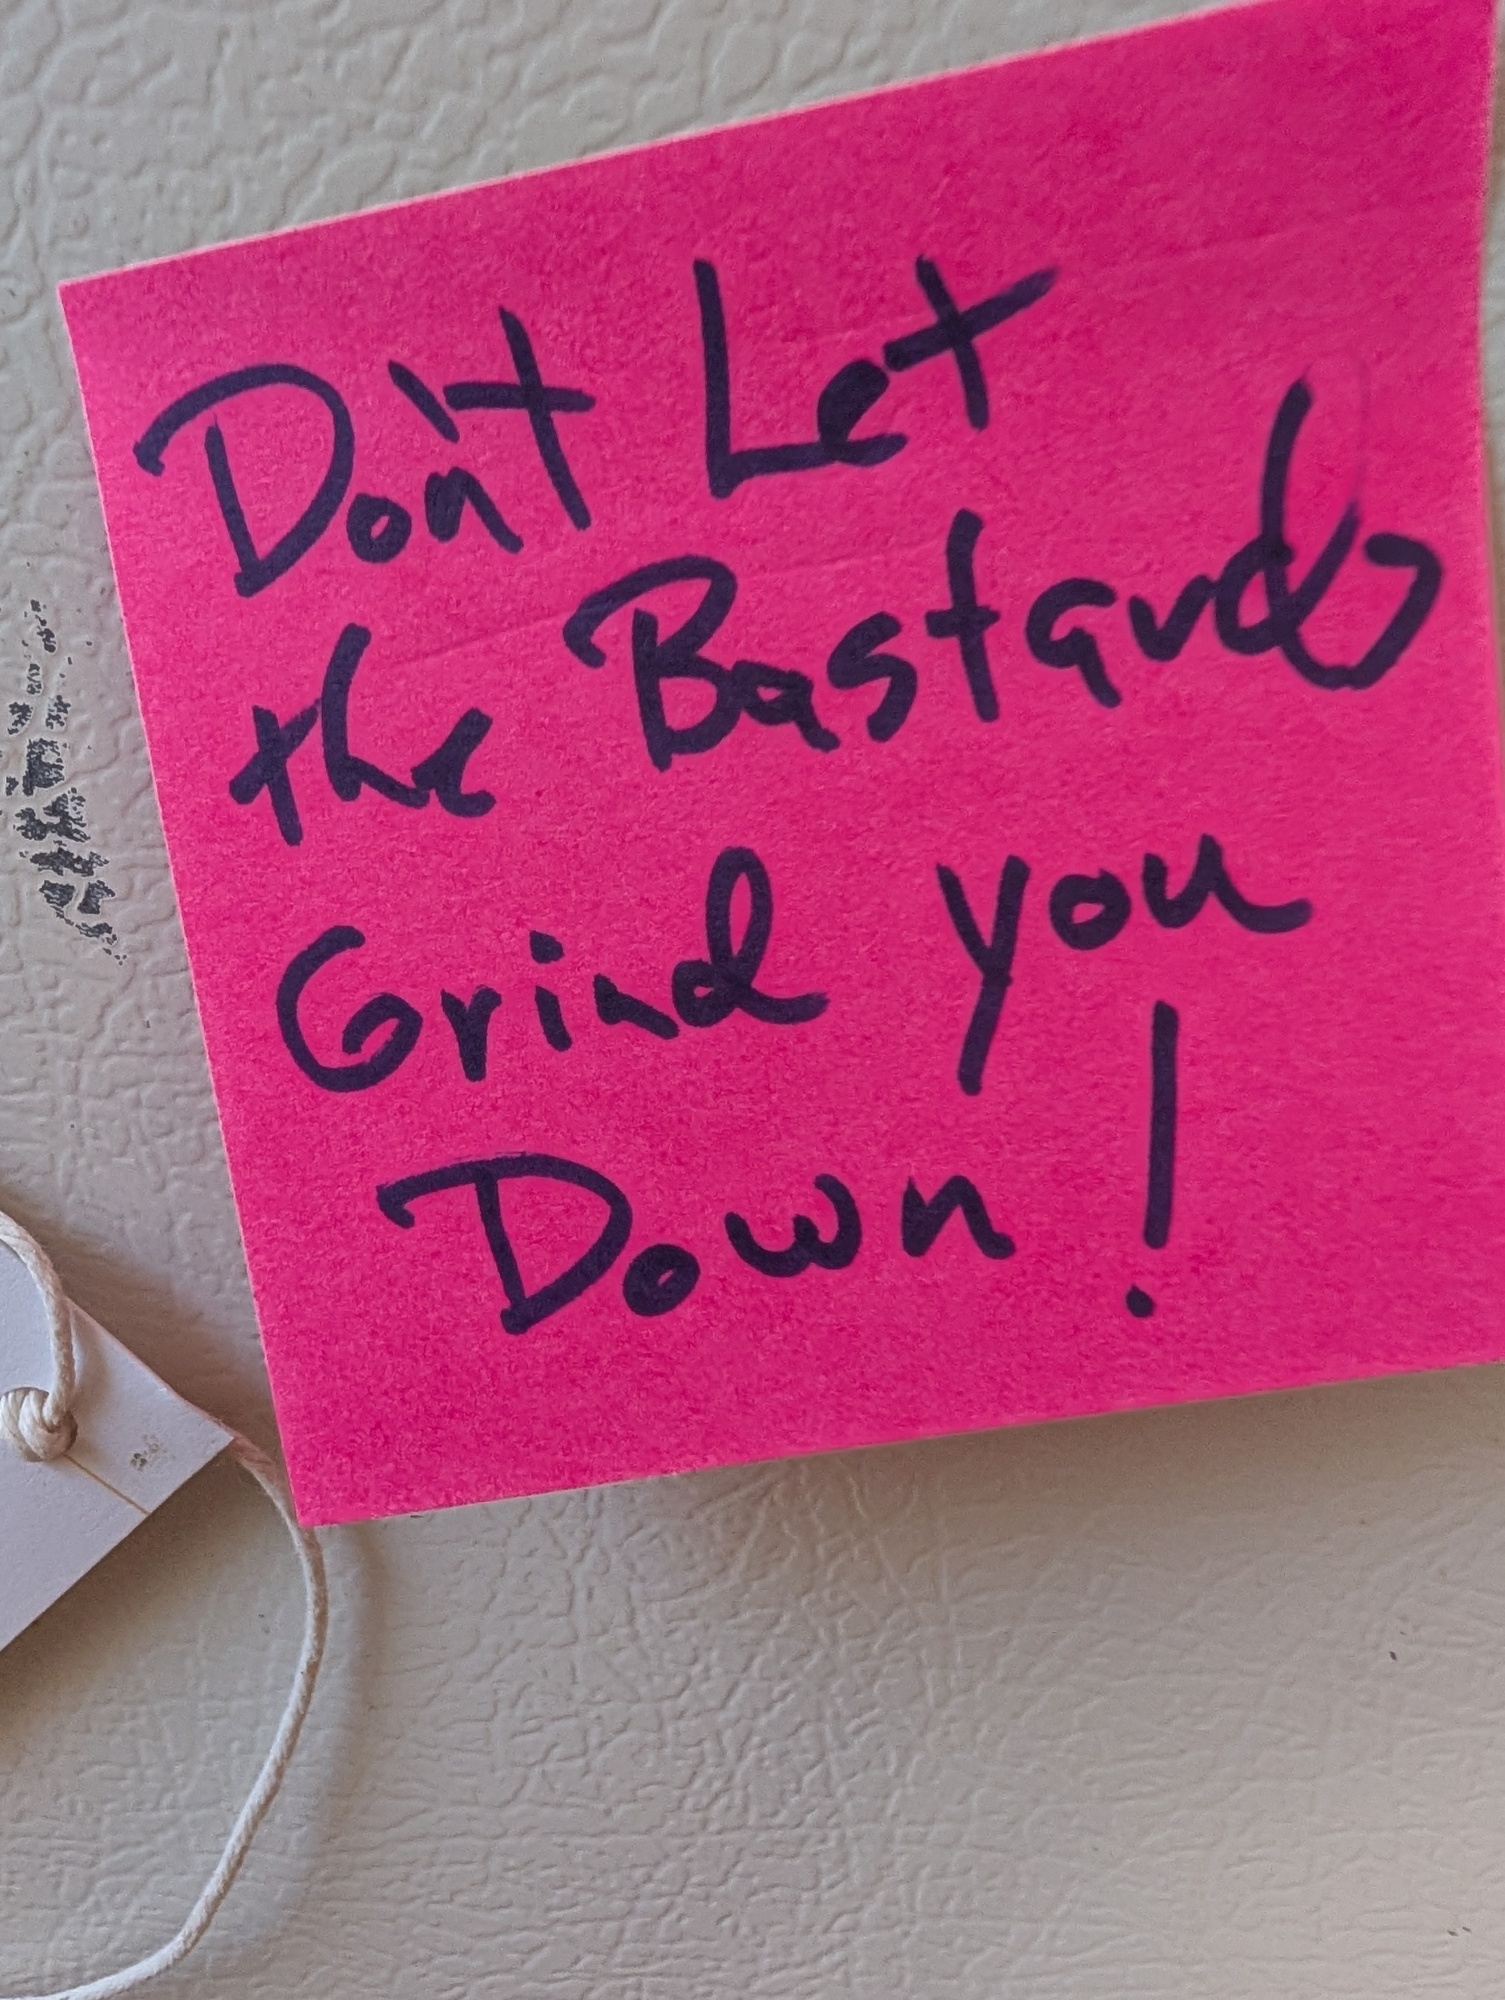 Don't Let
the Bastards
Grind you
Down!